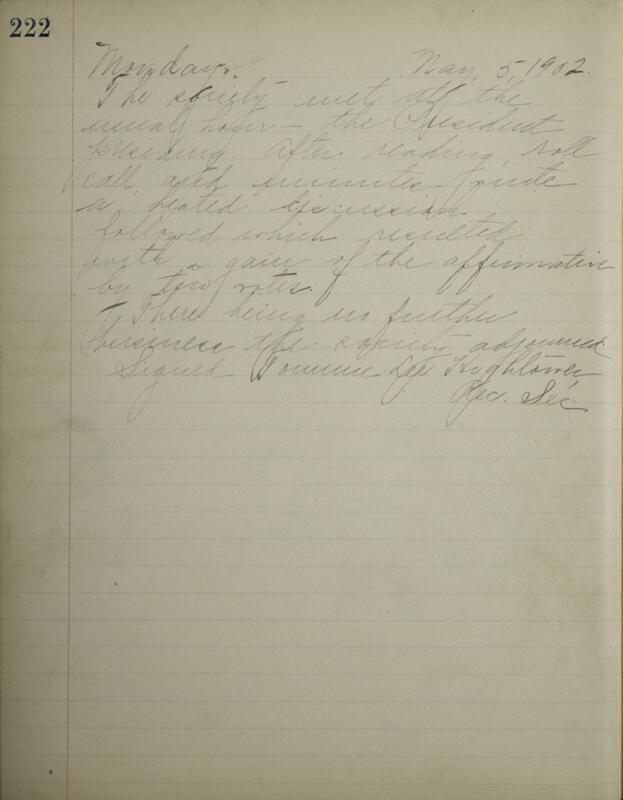 222
Monday. May, 5, 1902.
The society met at the
usual hour - the President
presiding. After reading, roll
call, and minutes quite
a heated discussion
followed which resulted
with a gain of the affirmative
by two votes.
There being no further
business the society adjourned
Signed Tommie Lee Hightower
Rec. Sec.